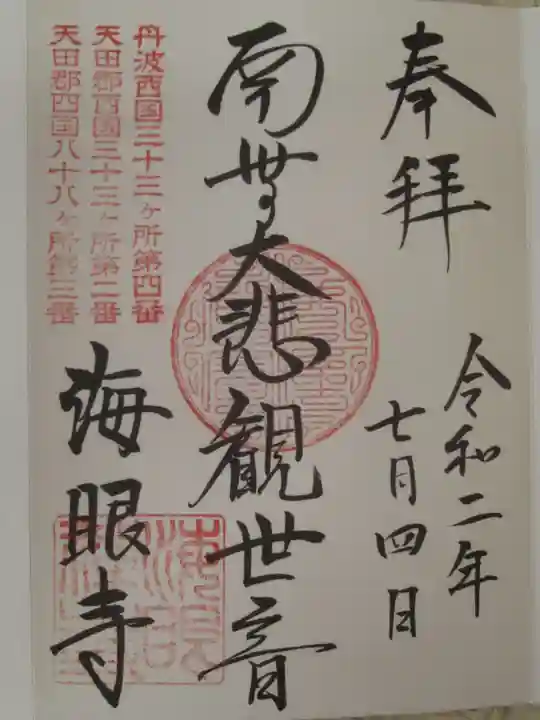 奉拝
令和二年
七月四日
南無大悲観世音
海眼寺
丹波西国三十三ヶ所第四番
天田郡西国三十三ヶ所第二番
天田郡四国八十八ヶ所第三番